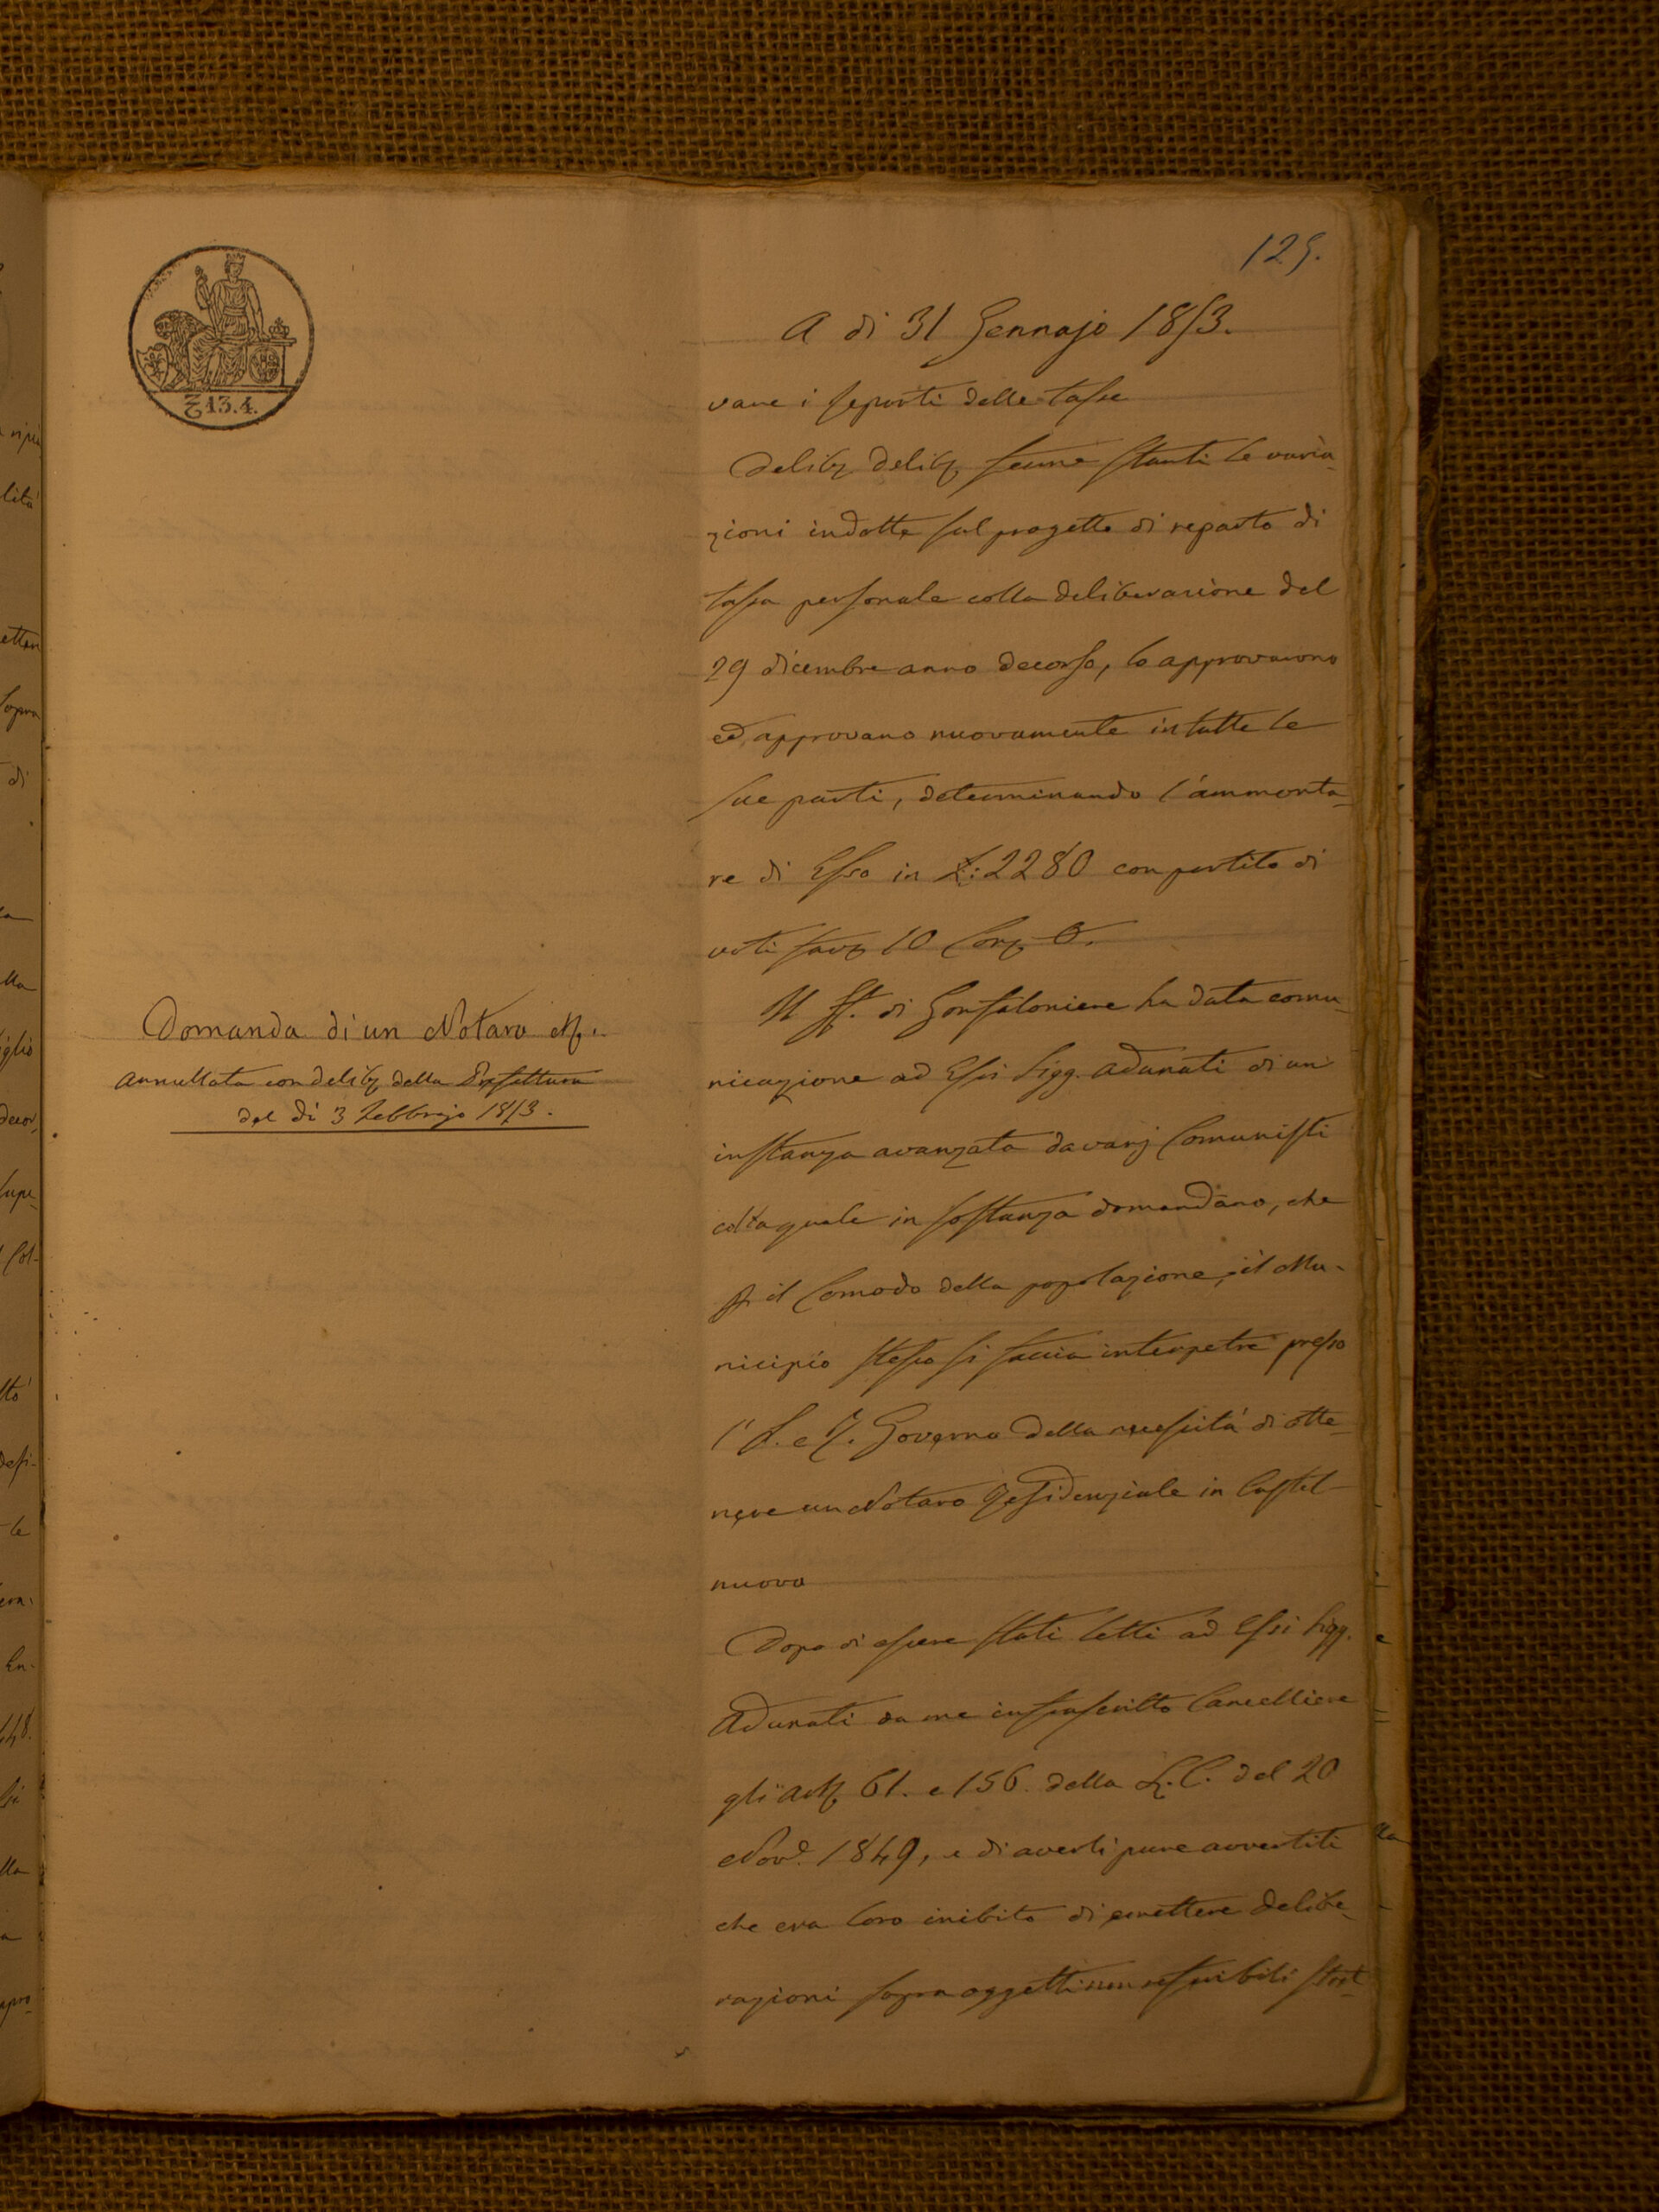 125.
A di 31 Gennajo 1853.
vare i reparti delle tasse
Delibz. Delibz. ferme stanti le varia-
zioni indotte sul progetto di reparto di
tassa personale colla deliberazione del
29 dicembre anno decorso, lo approvarono
ed approvano nuovamente in tutte le
sue parti, determinando l'ammonta-
re di Esso in L: 2280 con partito di
voti favz. 10 Conz. 0.
Il ff. di Gonfaloniere ha data comu-
nicazione ad Essi Sigg. Adunati di un
instanza avanzata da varj Comunisti
colla quale in sostanza domandano, che
il Comodo della popolazione, il Mu-
nicipio stesso si faccia interpetre presso
l'I. e R. Governo della necessità di otte-
nere un Notaro Residenziale in Castel-
nuovo
Dopo di essere stati letti ad Essi Sigg.
Adunati da me infrascritto Cancelliere
gli Artz. 61. e 156. della L. C. del 20
Nov. 1849, e di averli pure avvertiti
che era loro inibito di emettere delibe-
razioni sopra oggetti non
Domanda di un Notaro
Annullata con delibz. della Prefettura
del di 3 Febbrajo 1853.
13.4.